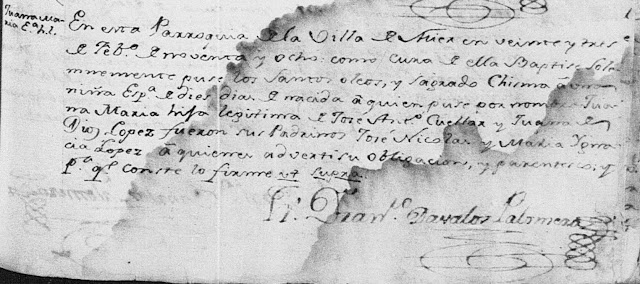 Juana Ma-
ria Esª. h. l.
En esta Parroquia de la Villa de Mier en veinte y tres
de Febº. de noventa y ocho. como cura de ella Baptise Sole
mnemente puse los Santos oleos, y Sagrado Chisma à una
niña Espª. de dies dias de nacida à quien puse por nombre Jua
na Maria hija legitima de Jose Antº. Cuellar y Juana de
Dios Lopez fueron sus Padrinos José Nicolas y Maria Ygna
cia Lopez à quienes adverti su obligacion, y parentesco, y
pª. qᵉ. conste lo firmé ut supra.
Franᶜᵒ. Davalos Palomera